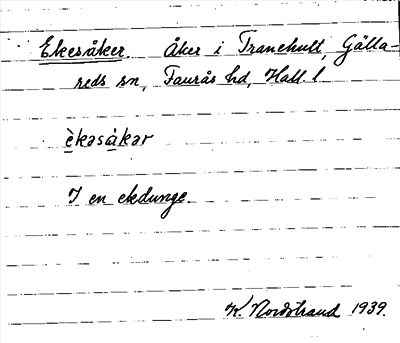 Ekesåker. Åker i Tranhult, Gälla-
reds sn, Faurås hd, Hall. l
èkasåkar
I en ekdunge.
K. Nordstrand 1939.